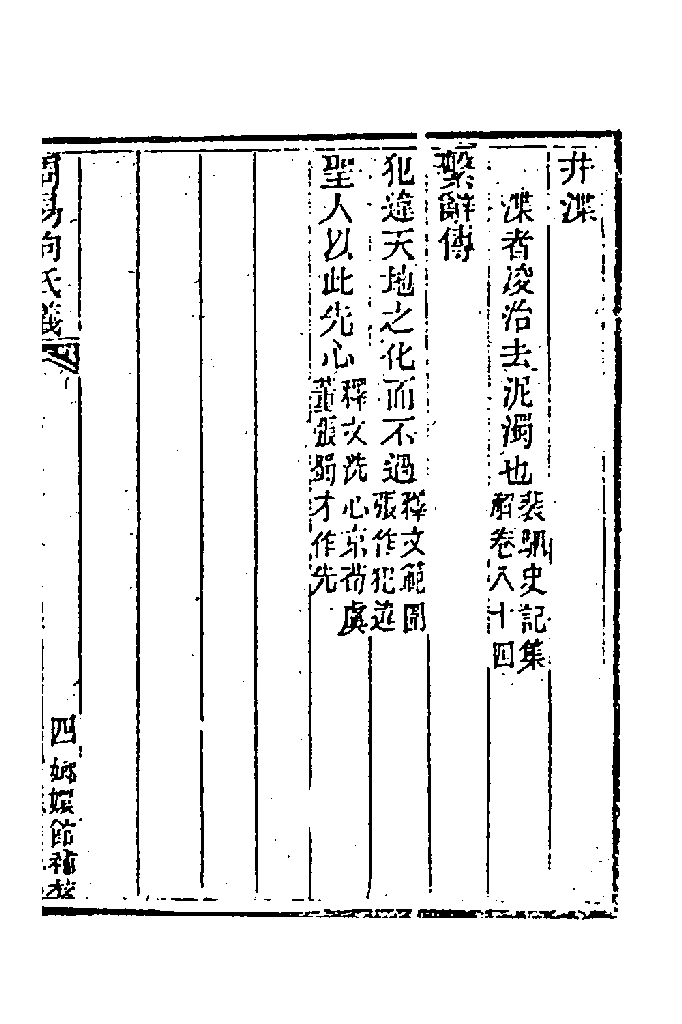 井渫
渫者浚治去泥濁也裴駰史記集解卷八十四
繫辭傳
犯違天地之化而不過釋文範圍張作犯違
聖人以此先心釋文洗心京荀虞董張蜀才作先
周易向氏義
四
嫏嬛館補校